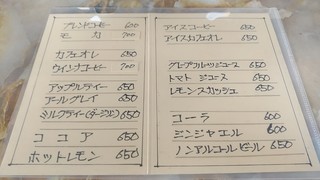 ブレンドコーヒー 600
モカ 700
カフェオレ 650
ウインナコーヒー 700
アップルティー 650
アールグレイ 650
ミルクティー(ダージリン) 650
ココア 650
ホットレモン 650
アイスコーヒー 650
アイスカフェオレ 650
グレープフルーツジュース 650
トマトジュース 650
レモンスカッシュ 650
コーラ 600
ジンジャエール 600
ノンアルコールビール 650